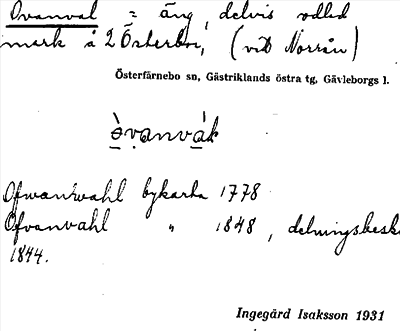 Ovanval = äng, delvis odlad
mark å 2 Österbor, (vid Norrån)
Österfärnebo sn, Gästriklands östra tg, Gävleborgs l.
Ofwanwahl bykarta 1778
Ofvanvahl " 1848, delningsbesk
1844.
Ingegärd Isaksson 1931